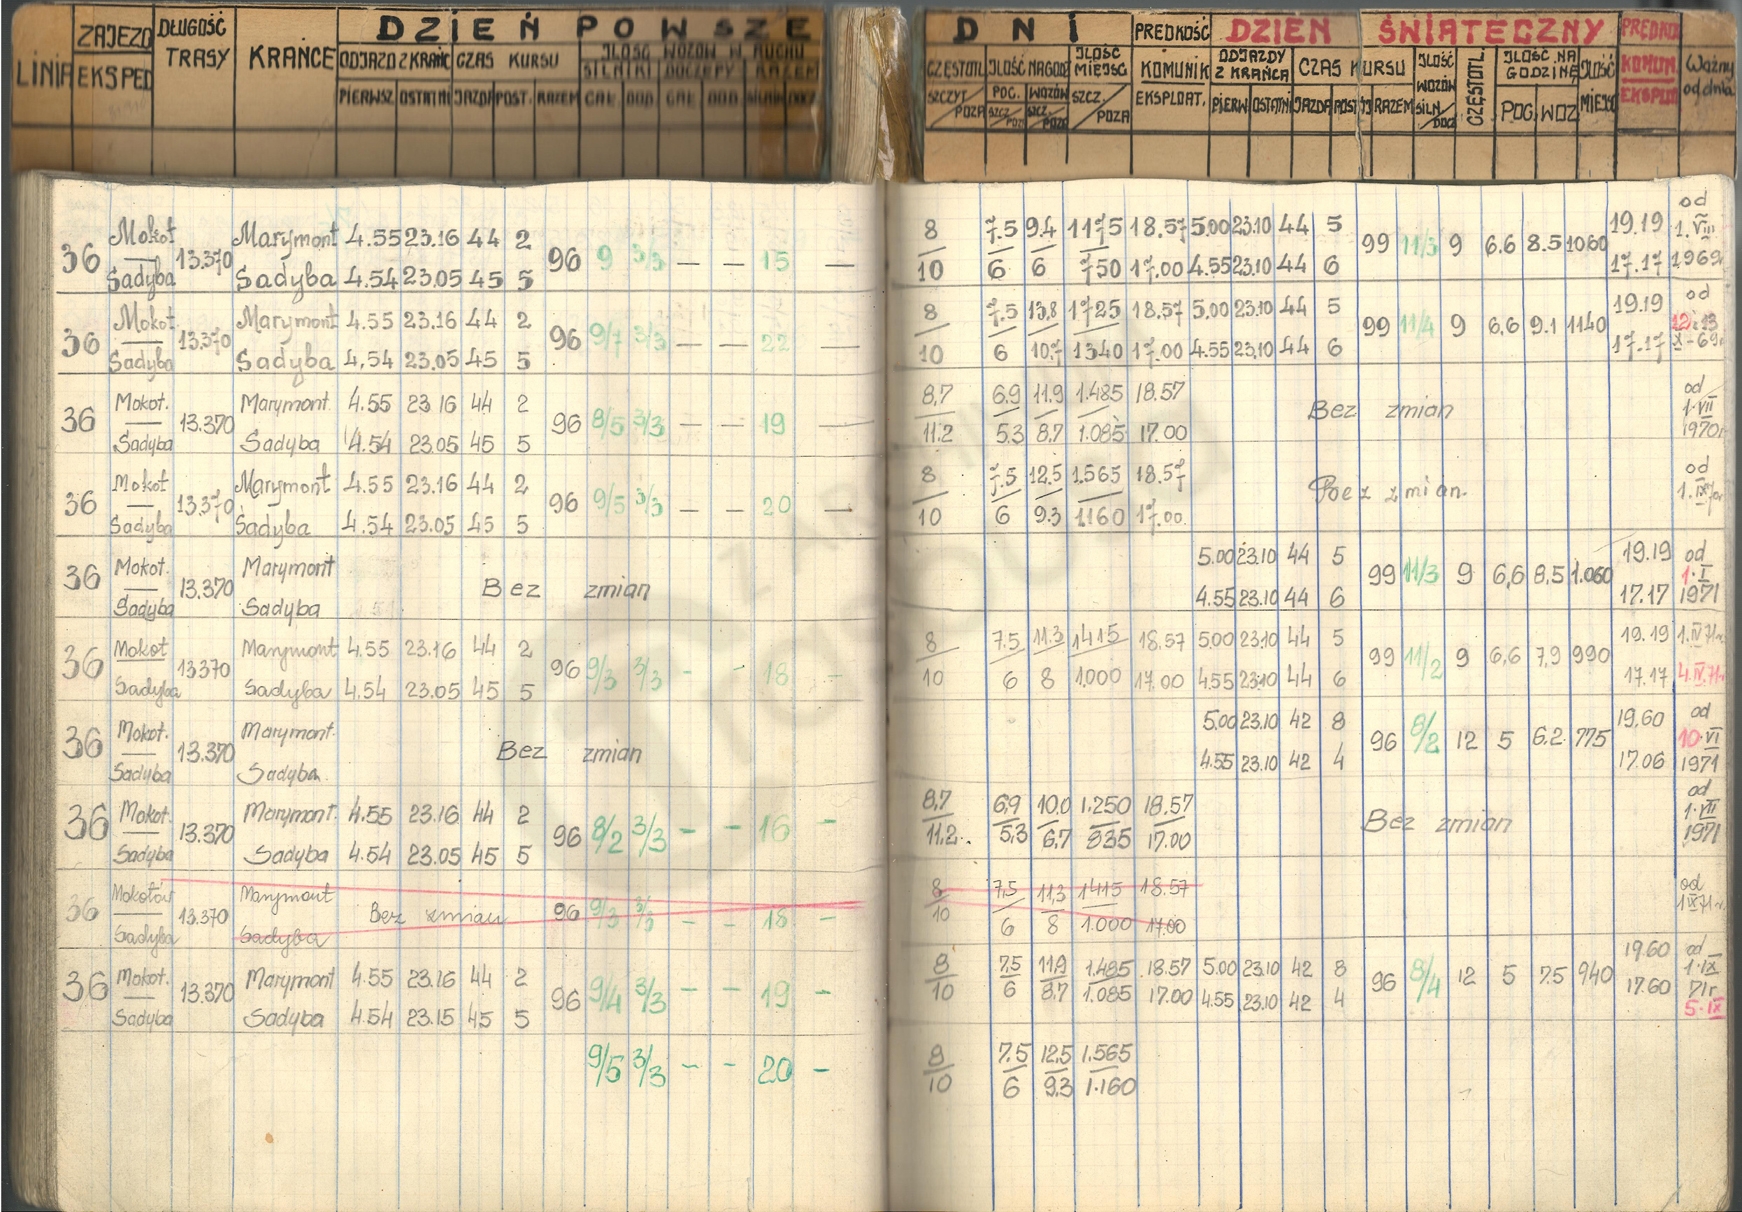 LINIA ZAJEZD EKSPED DŁUGOŚĆ TRASY KRAŃCE DZIEŃ POWSZE
ODJAZD Z KRAŃC CZAS KURSU ILOŚĆ WOZÓW W RUCHU
SILNIKI DOCZEPY RAZEM
PIERWSZ OSTATNI JAZDA POST. RAZEM CAŁ. DOD. CAŁ. DOD. SILNIK DOCZ.
DNI PRĘDKOŚĆ DZIEŃ ŚWIĄTECZNY PRĘDKO
CZĘSTOTL ILOŚĆ NA GODZ ILOŚĆ MIEJSC KOMUNIK ODJAZDY Z KRAŃCA CZAS KURSU ILOŚĆ WOZÓW CZĘSTOTL ILOŚĆ NA GODZINĘ ILOŚĆ MIEJSC KOMUN. Ważny od dnia
SZCZYT/POZA POC. SZCZ./POZA WOZÓW SZCZ./POZA SZCZ./POZA EKSPLOAT. PIERW OSTATNI JAZDA POST RAZEM SILN/DOCZ POC. WOZ EKSPLO
36 Mokot 13.370 Marymont 4.55 23.16 44 2 96 9 3/3 — — 15 —
Sadyba Sadyba 4.54 23.05 45 5
8 7.5 9.4 1175 18.57 5.00 23.10 44 5 99 11/3 9 6.6 8.5 1060 19.19 od 1.VIII
10 6 6 750 17.00 4.55 23.10 44 6 17.17 1969r
36 Mokot 13.370 Marymont 4.55 23.16 44 2 96 9/7 3/3 — — 22 —
Sadyba Sadyba 4,54 23.05 45 5
8 7.5 13,8 1725 18.57 5,00 23.10 44 5 99 11/4 9 6,6 9.1 1140 19.19 od 12 i 13
10 6 10,7 1340 17.00 4.55 23,10 44 6 17.17 X-69r
36 Mokot. 13.370 Marymont 4.55 23 16 44 2 96 8/5 3/3 — — 19 —
Sadyba Sadyba 4.54 23.05 45 5
8,7 6.9 11.9 1.485 18.57 Bez zmian od 1.VII
11.2 5.3 8,7 1.085 17.00 1970r
36 Mokot 13.370 Marymont 4.55 23.16 44 2 96 9/5 3/3 — — 20 —
Sadyba Sadyba 4.54 23.05 45 5
8 7.5 12.5 1.565 18.57 Bez zmian. od
10 6 9.3 1160 17.00. 1.IX
36 Mokot. 13.370 Marymont Bez zmian
Sadyba Sadyba
5.00 23.10 44 5 99 11/3 9 6,6 8,5 1.060 19.19 od 1.I
4.55 23.10 44 6 17.17 1971
36 Mokot 13370 Marymont 4.55 23.16 44 2 96 9/3 3/3 - - 18 -
Sadyba Sadyba 4.54 23.05 45 5
8 7.5 11.3 1415 18.57 5.00 23.10 44 5 99 11/2 9 6,6 7,9 990 19.19 1.IV.71r
10 6 8 1.000 17.00 4.55 23.10 44 6 17.17 4.IV.71r
36 Mokot. 13.370 Marymont. Bez zmian
Sadyba Sadyba
5.00 23.10 42 8 96 8/2 12 5 6.2. 775 19,60 od 10.VI
4.55 23.10 42 4 17.06 1971
36 Mokot. 13.370 Marymont. 4.55 23.16 44 2 96 8/2 3/3 - - 16 -
Sadyba Sadyba 4.54 23.05 45 5
8,7 6,9 10.0 1.250 18.57 Bez zmian od 1.VII
11,2. 5,3 6,7 835 17.00 1971
36 Mokotów 13.370 Marymont Bez zmian 96 9/3 3/3 - - 18 -
Sadyba Sadyba
8 7,5 11,3 1415 18.57 od
10 6 8 1.000 17.00 1.IX.71r.
36 Mokot. 13.370 Marymont 4.55 23.16 44 2 96 9/4 3/3 - - 19 -
Sadyba Sadyba 4.54 23.15 45 5
8 7.5 11.9 1.485 18.57 5.00 23.10 42 8 96 8/4 12 5 7.5 940 19.60 od 1.IX
10 6 8,7 1.085 17.00 4.55 23.10 42 4 17.60 71r 5.IX
9/5 3/3 - - 20 -
8 7.5 12,5 1.565
10 6 9.3 1.160